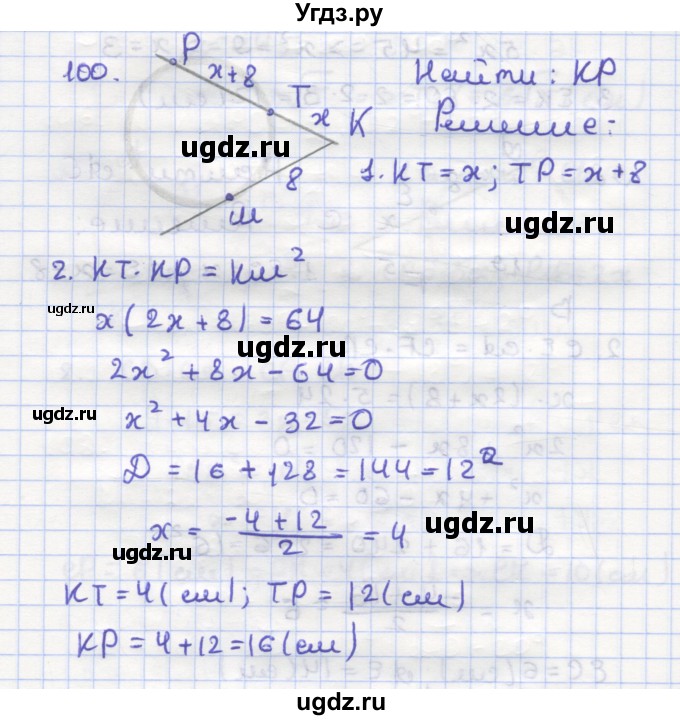 Угдз.ру
100.
P
x+8
T
x
K
8
M
Найти: KP
Решение:
1. KT = x; TP = x+8
2. KT · KP = KM²
x(2x+8) = 64
2x² + 8x - 64 = 0
x² + 4x - 32 = 0
D = 16 + 128 = 144 = 12²
x = (-4+12)/2 = 4
KT = 4(см); TP = 12(см)
KP = 4+12 = 16(см)
ugdz.ru
ugdz.ru
ugdz.ru
ugdz.ru
ugdz.ru
ugdz.ru
ugdz.ru
ugdz.ru
ugdz.ru